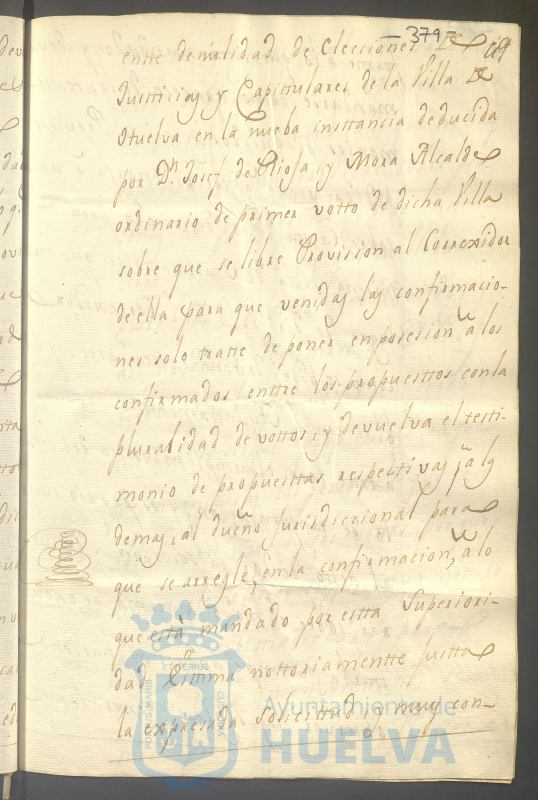 - 379 -
entte de nulidad de Elecciones de
Justticias y Capittulares de la Villa de
Huelva en la nueba insttancia deducida
por Dn. Josef de Riosa, y Mora Alcalde
ordinario de primer votto de dicha Villa
sobre que se libre Provision al Correxidor
de ella para que venidas las confirmacio-
nes solo tratte de poner en posesion a los
confirmados enttre los propuesttos con la
pluralidad de vottos, y devuelva el testi-
monio de propuesttas respectivas, a las
demas, al dueño Jurisdiccional para
que se arregle, en la confirmacion, a lo
que està mandado por estta Superiori-
dad Esttima nottoriamentte justta
la expresada solicittud, y muy con-
PORTUS MARIS ET TERRE CUSTODIA
Ayuntamiento de
HUELVA